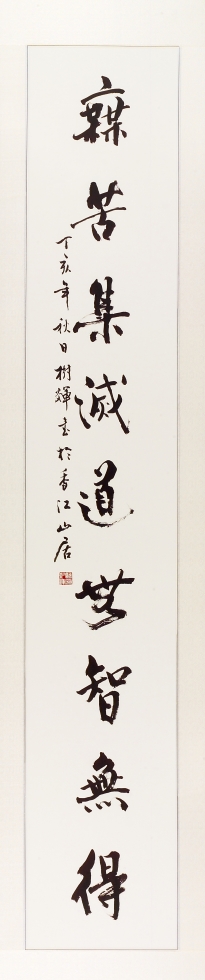 無苦集滅道無智無得
丁亥年秋日樹輝書於香江山居